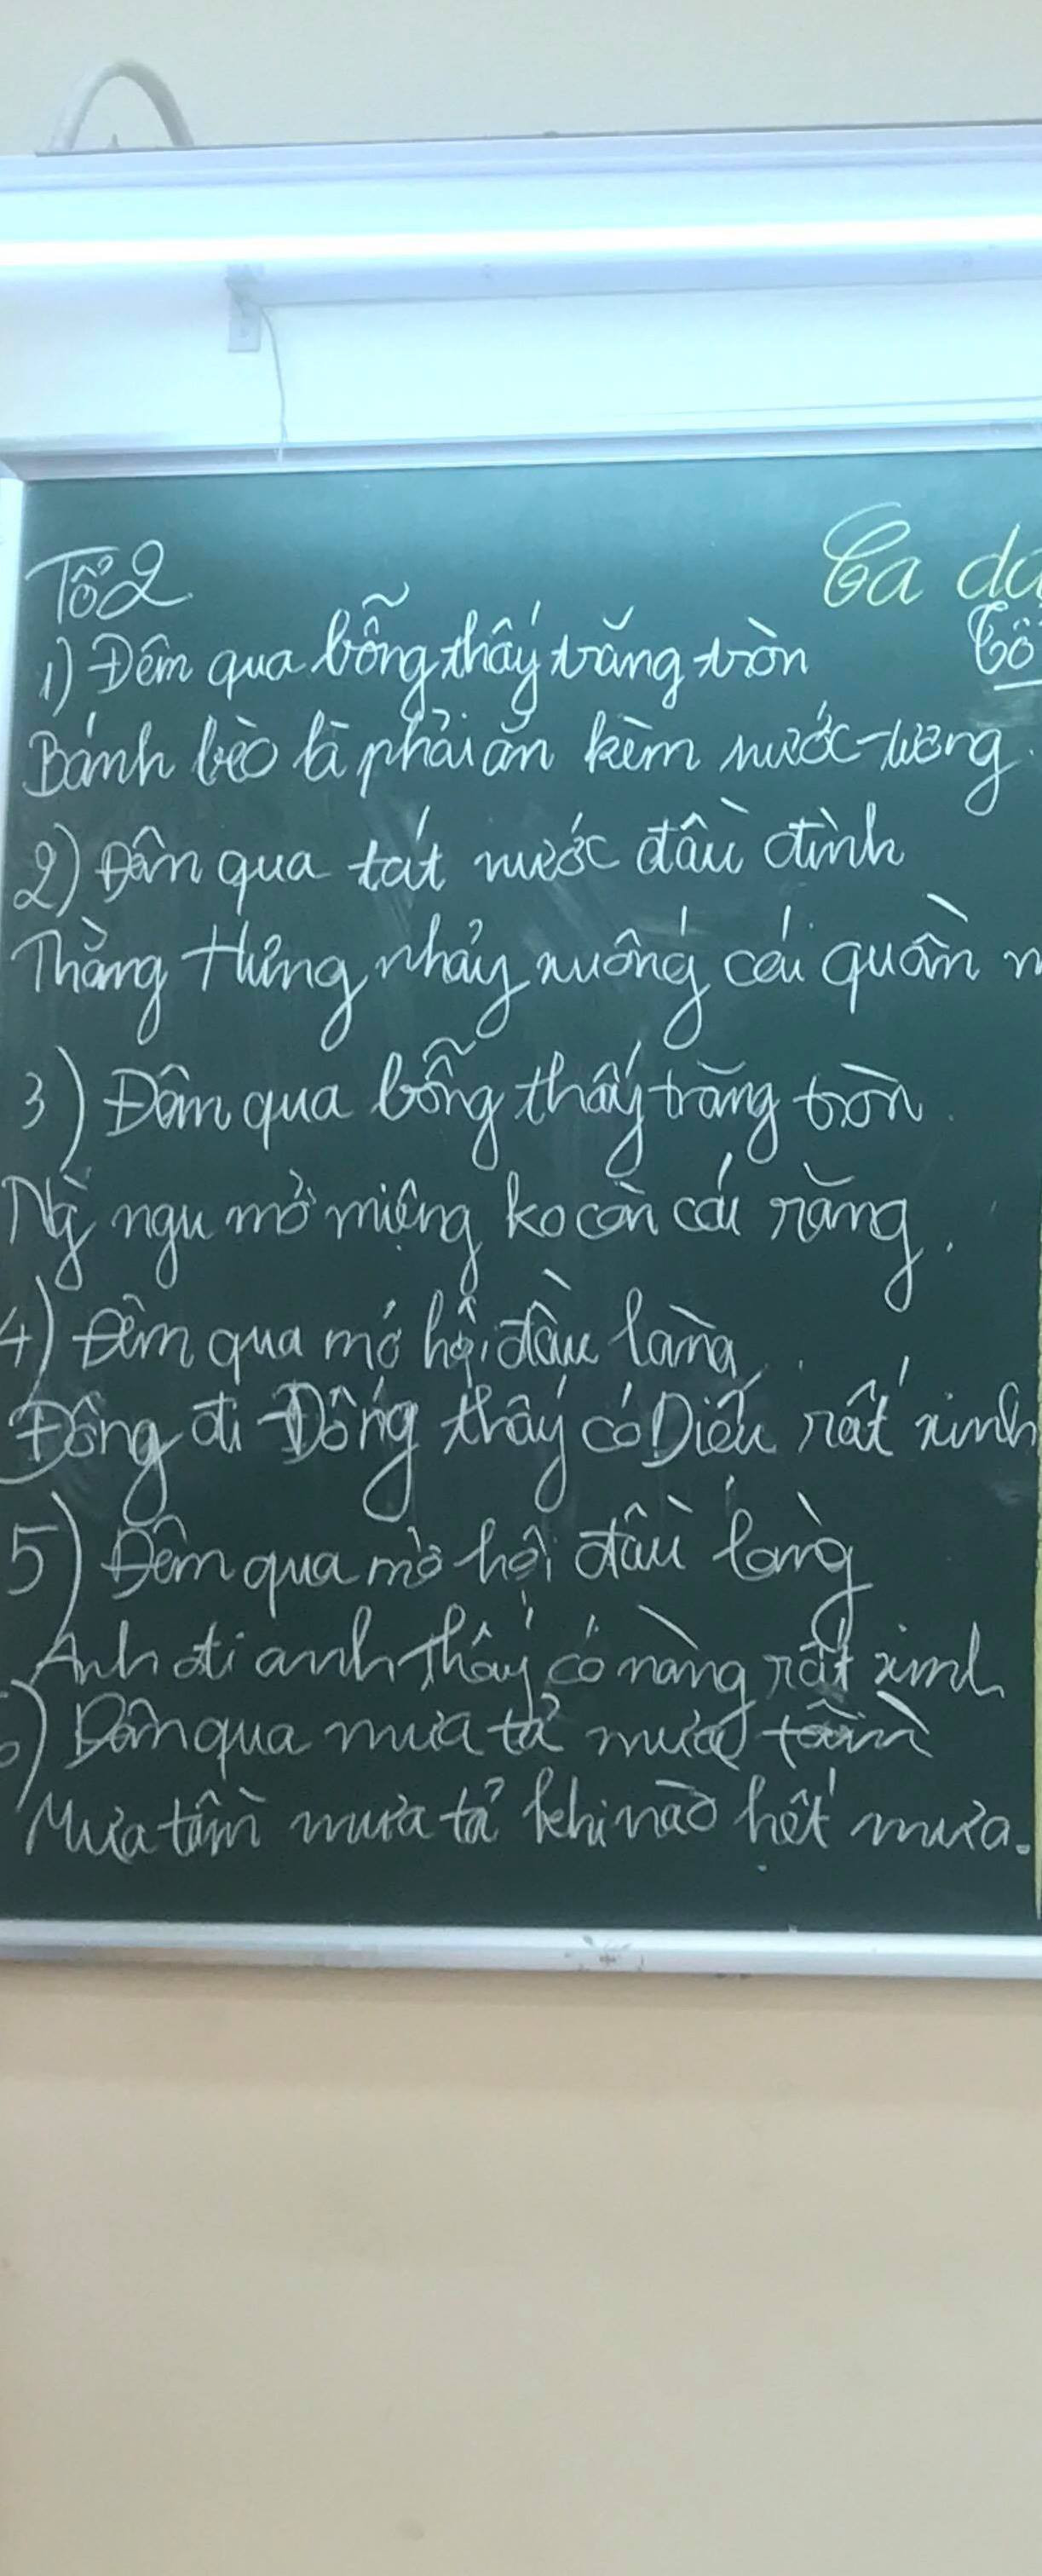 Ca da
Tổ 2
Tổ
1) Đêm qua bỗng thấy trăng tròn
Bánh bèo là phải ăn kèm nước-tương.
2) Đêm qua tát nước đầu đình
Thằng Hưng nhảy xuống cái quần
3) Đêm qua bỗng thấy trăng tròn.
Mỹ ngu mở miệng ko còn cái răng.
4) Đêm qua mở hội đầu làng
Đông đi Đông thấy có Diếu rất xinh
5) Đêm qua mở hội đầu làng
Anh đi anh thấy có nàng rất xinh
6) Đêm qua mưa tả mưa tầm
Mưa tầm mưa tả khi nào hết mưa.